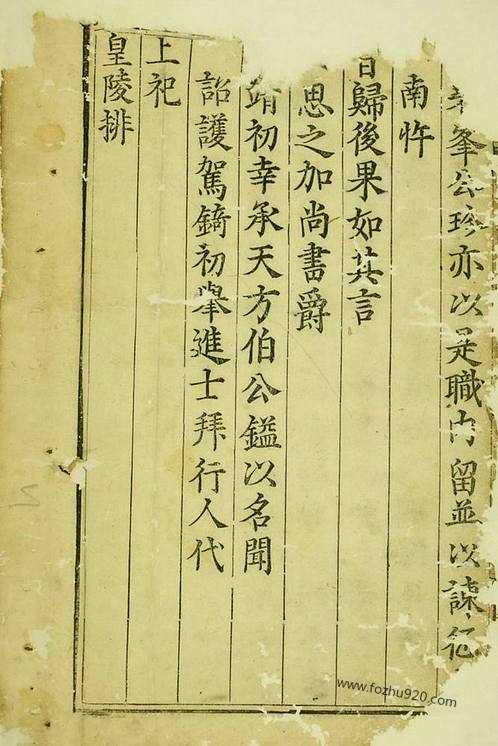 峯公珍亦以是職內留並以謀
南忤
旨歸後果如其言
思之加尚書爵
靖初幸承天方伯公鎰以名聞
詔護駕錡初舉進士拜行人代
上祀
皇陵排
www.fozhu920.com